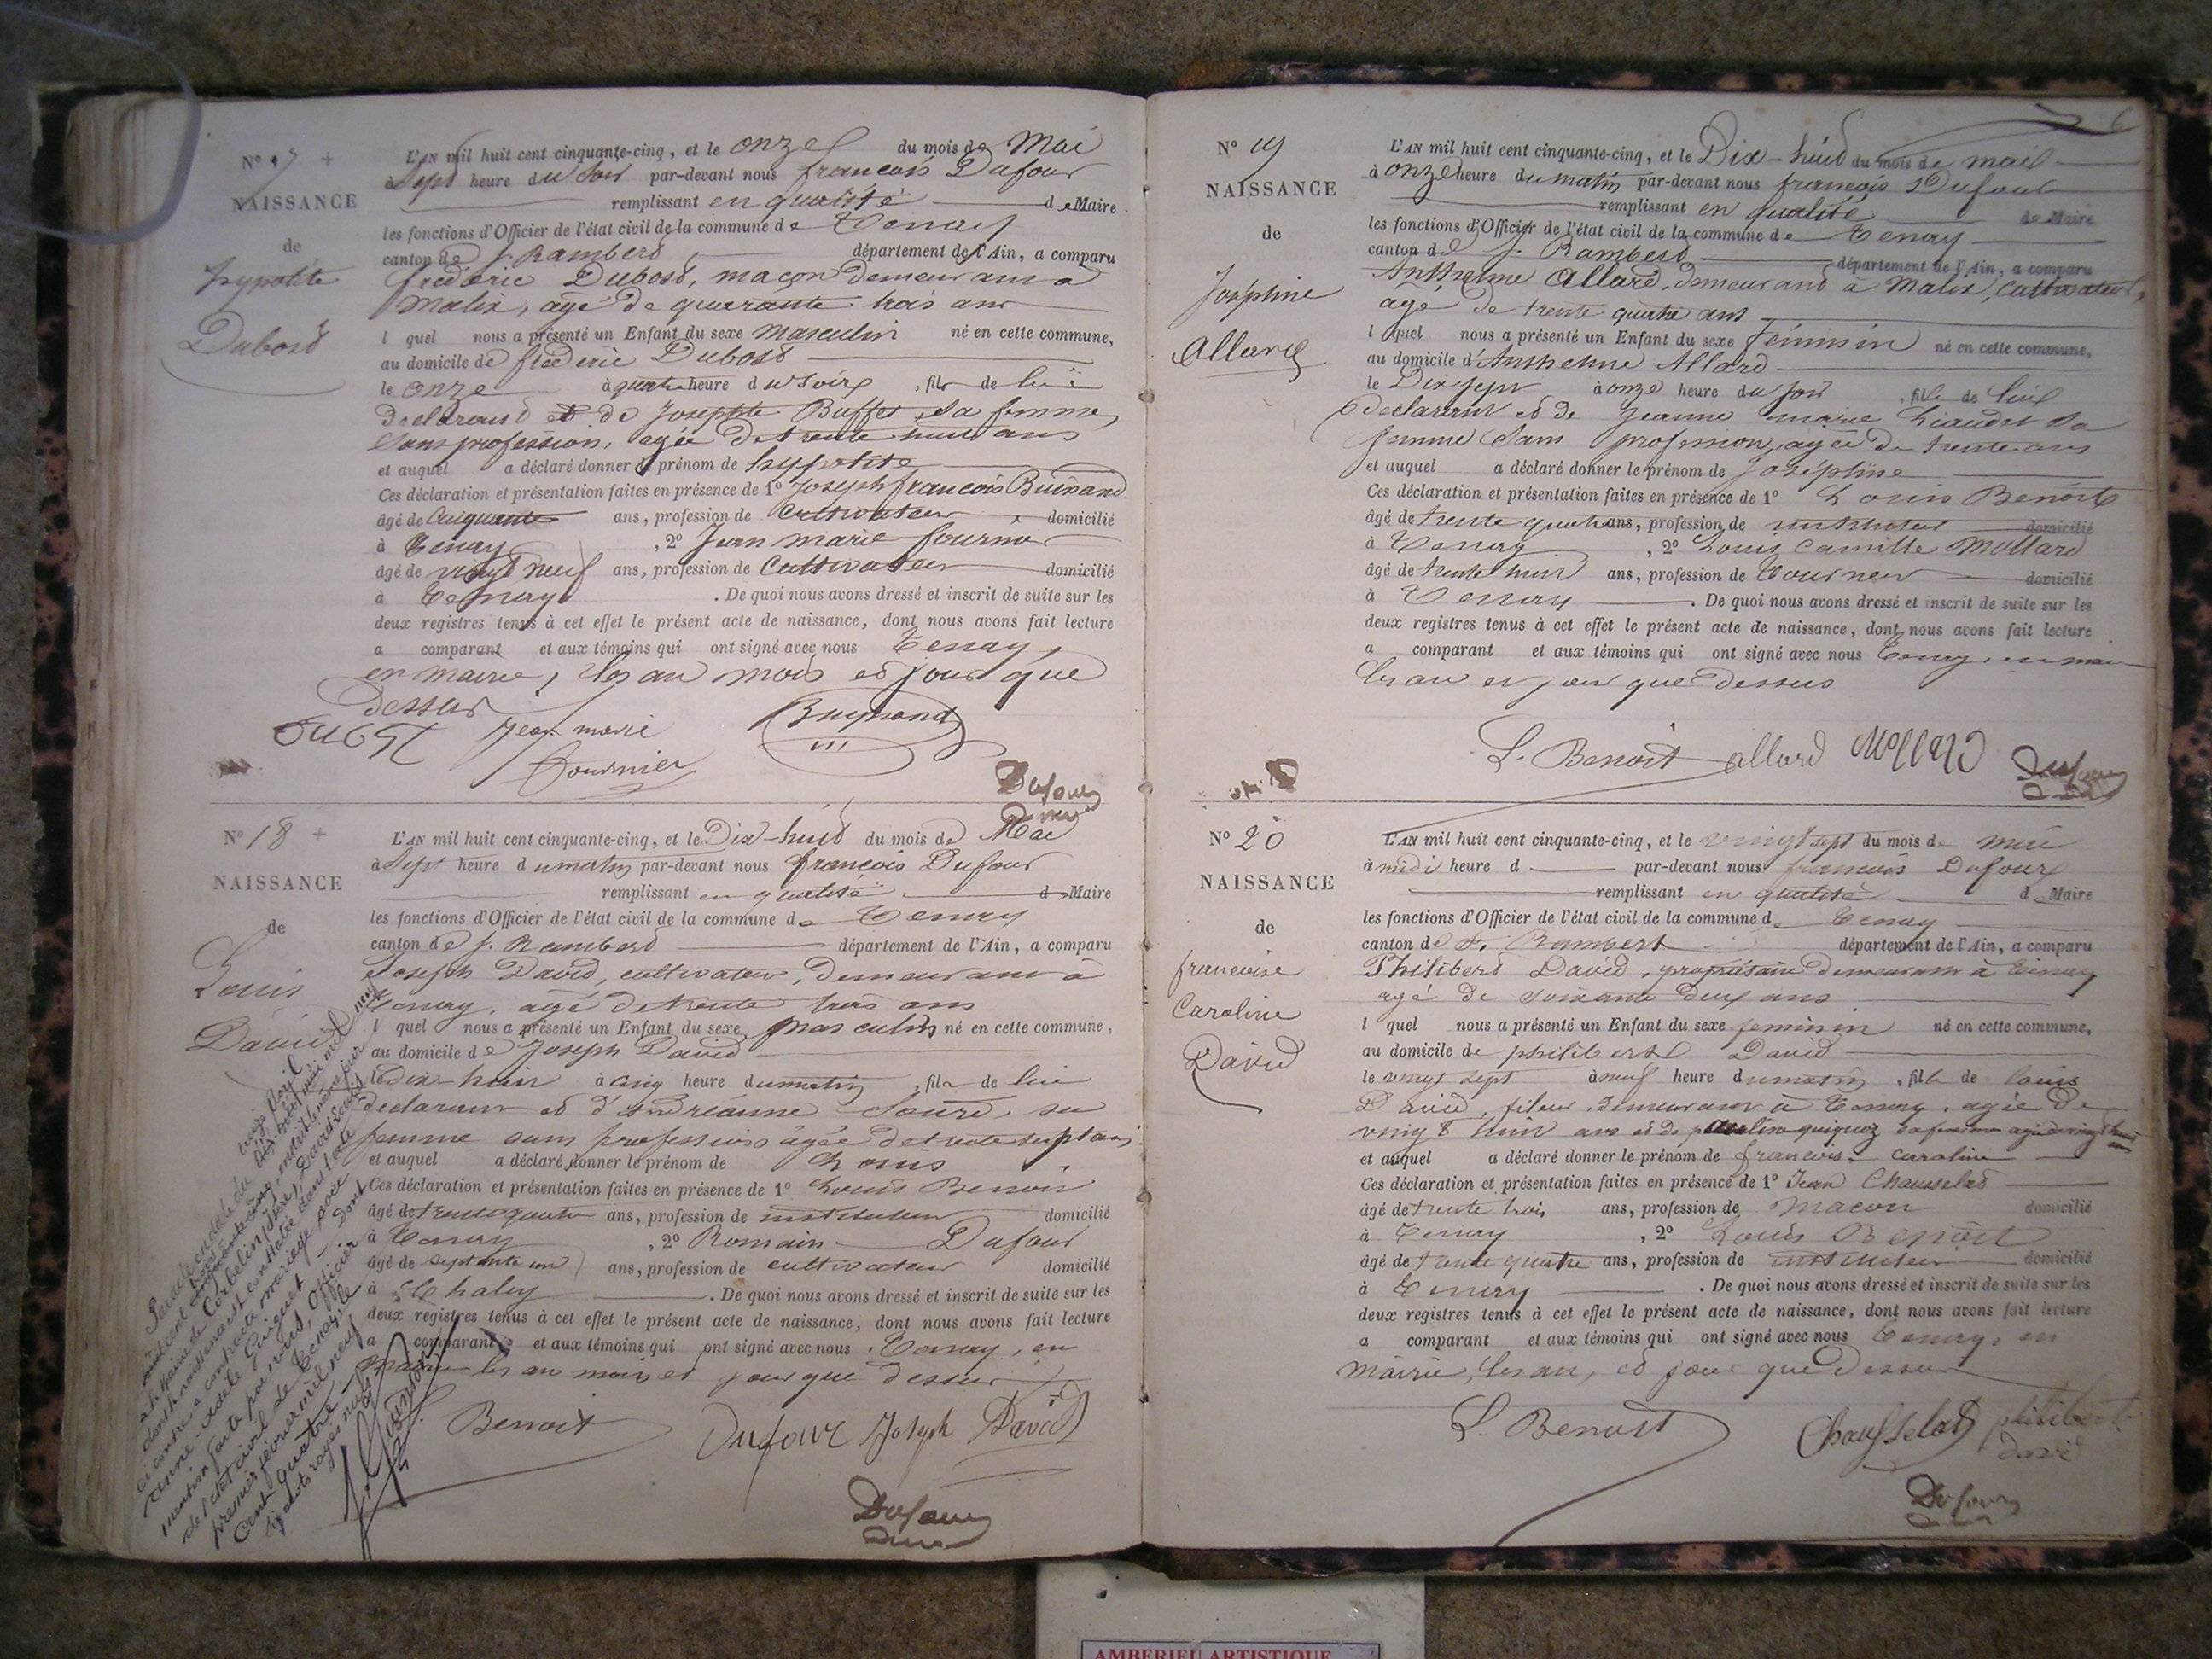 N° 17 +
NAISSANCE
de
hypolite
Dubost
L'AN mil huit cent cinquante-cinq, et le onze du mois de Mai
à Sept heure du Soir par-devant nous francois Dufour
remplissant en qualité de Maire
les fonctions d'Officier de l'état civil de la commune de Tenay
canton de St Rambert département de l'Ain, a comparu
frederic Dubost, maçon demeurant à
Malix, agé de quarante trois ans
l quel nous a présenté un Enfant du sexe masculin né en cette commune,
au domicile de frederic Dubost
le onze à quatre heure du Soir, fils de lui
declarant et de Josephte Buffet, sa femme,
sans profession, agée de trente huit ans
et auquel a déclaré donner le prénom de hypolite
Ces déclaration et présentation faites en présence de 1° Joseph francois Buinand
âgé de Cinquante ans, profession de Cultivateur domicilié
à Tenay, 2° Jean marie fournier
âgé de vingt neuf ans, profession de Cultivateur domicilié
à Tenay. De quoi nous avons dressé et inscrit de suite sur les
deux registres tenus à cet effet le présent acte de naissance, dont nous avons fait lecture
a comparant et aux témoins qui ont signé avec nous Tenay,
en mairie, les an mois et jour que
dessus
Jean marie
fournier
Buynand
Dufour
N° 18 +
NAISSANCE
de
Louis
David
L'AN mil huit cent cinquante-cinq, et le Dix-huit du mois de Mai
à Sept heure du matin par-devant nous francois Dufour
remplissant en qualité de Maire
les fonctions d'Officier de l'état civil de la commune de Tenay
canton de St Rambert département de l'Ain, a comparu
Joseph David, cultivateur, demeurant à
Tenay, agé de trente trois ans
l quel nous a présenté un Enfant du sexe masculin né en cette commune,
au domicile de Joseph David
le Dix-huit à cinq heure du matin, fils de lui
declarant et d'andréanne, sa
femme sans profession agée de trente sept ans
et auquel a déclaré donner le prénom de Louis
Ces déclaration et présentation faites en présence de 1° Louis Benoit
âgé de trente quatre ans, profession de instituteur domicilié
à Tenay, 2° Romain Dufour
âgé de septante un ans, profession de cultivateur domicilié
à Chaley. De quoi nous avons dressé et inscrit de suite sur les
deux registres tenus à cet effet le présent acte de naissance, dont nous avons fait lecture
a comparant et aux témoins qui ont signé avec nous Tenay, en
mairie les an mois et jour que dessus
L. Benoit Dufour Joseph David
Dufour
Par acte en date du treize Avril
à la Mairie de Corbelin (Isère), David Louis
dont la naissance est constatée dans l'acte
ci-contre a contracté mariage avec
mention faite par nous, officier
de l'état civil de Tenay, le
premier février mil neuf
cent quatre
N° 19
NAISSANCE
de
Joséphine
Allard
L'AN mil huit cent cinquante-cinq, et le Dix-huit du mois de mai
à onze heure du matin par-devant nous francois Dufour
remplissant en qualité de Maire
les fonctions d'Officier de l'état civil de la commune de Tenay
canton de St Rambert département de l'Ain, a comparu
Anthelme Allard, demeurant à Malix, Cultivateur,
agé de trente quatre ans
l quel nous a présenté un Enfant du sexe féminin né en cette commune,
au domicile d'Anthelme Allard
le Dix sept à onze heure du soir, fille de lui
declarant et de Jeanne marie Liaudet sa
femme sans profession, agée de trente ans
et auquel a déclaré donner le prénom de Joséphine
Ces déclaration et présentation faites en présence de 1° Louis Benoit
âgé de trente quatre ans, profession de instituteur domicilié
à Tenay, 2° Louis Camille Mollard
âgé de trente huit ans, profession de Tourneur domicilié
à Tenay. De quoi nous avons dressé et inscrit de suite sur les
deux registres tenus à cet effet le présent acte de naissance, dont nous avons fait lecture
a comparant et aux témoins qui ont signé avec nous Tenay, en mairie
les an et jour que dessus
L. Benoit allard Mollard Dufour
N° 20
NAISSANCE
de
francoise
Caroline
David
L'AN mil huit cent cinquante-cinq, et le vingt sept du mois de mai
à midi heure d par-devant nous francois Dufour
remplissant en qualité de Maire
les fonctions d'Officier de l'état civil de la commune de Tenay
canton de St Rambert département de l'Ain, a comparu
Philibert David, propriétaire demeurant à Tenay
agé de soixante deux ans
l quel nous a présenté un Enfant du sexe feminin né en cette commune,
au domicile de philibert David
le vingt sept à neuf heure du matin, fille de louis
David, fileur, demeurant à Tenay, agée de
vingt huit ans et de pauline quiquez sa femme agée de vingt huit ans
et auquel a déclaré donner le prénom de francoise Caroline
Ces déclaration et présentation faites en présence de 1° Jean Chausselat
âgé de trente trois ans, profession de Macon domicilié
à Tenay, 2° Louis Benoit
âgé de trente quatre ans, profession de instituteur domicilié
à Tenay. De quoi nous avons dressé et inscrit de suite sur les
deux registres tenus à cet effet le présent acte de naissance, dont nous avons fait lecture
a comparant et aux témoins qui ont signé avec nous Tenay, en
mairie, les an, et jour que dessus
L. Benoit Chausselat philibert
david
Dufour
AMBERIEU ARTISTIQUE